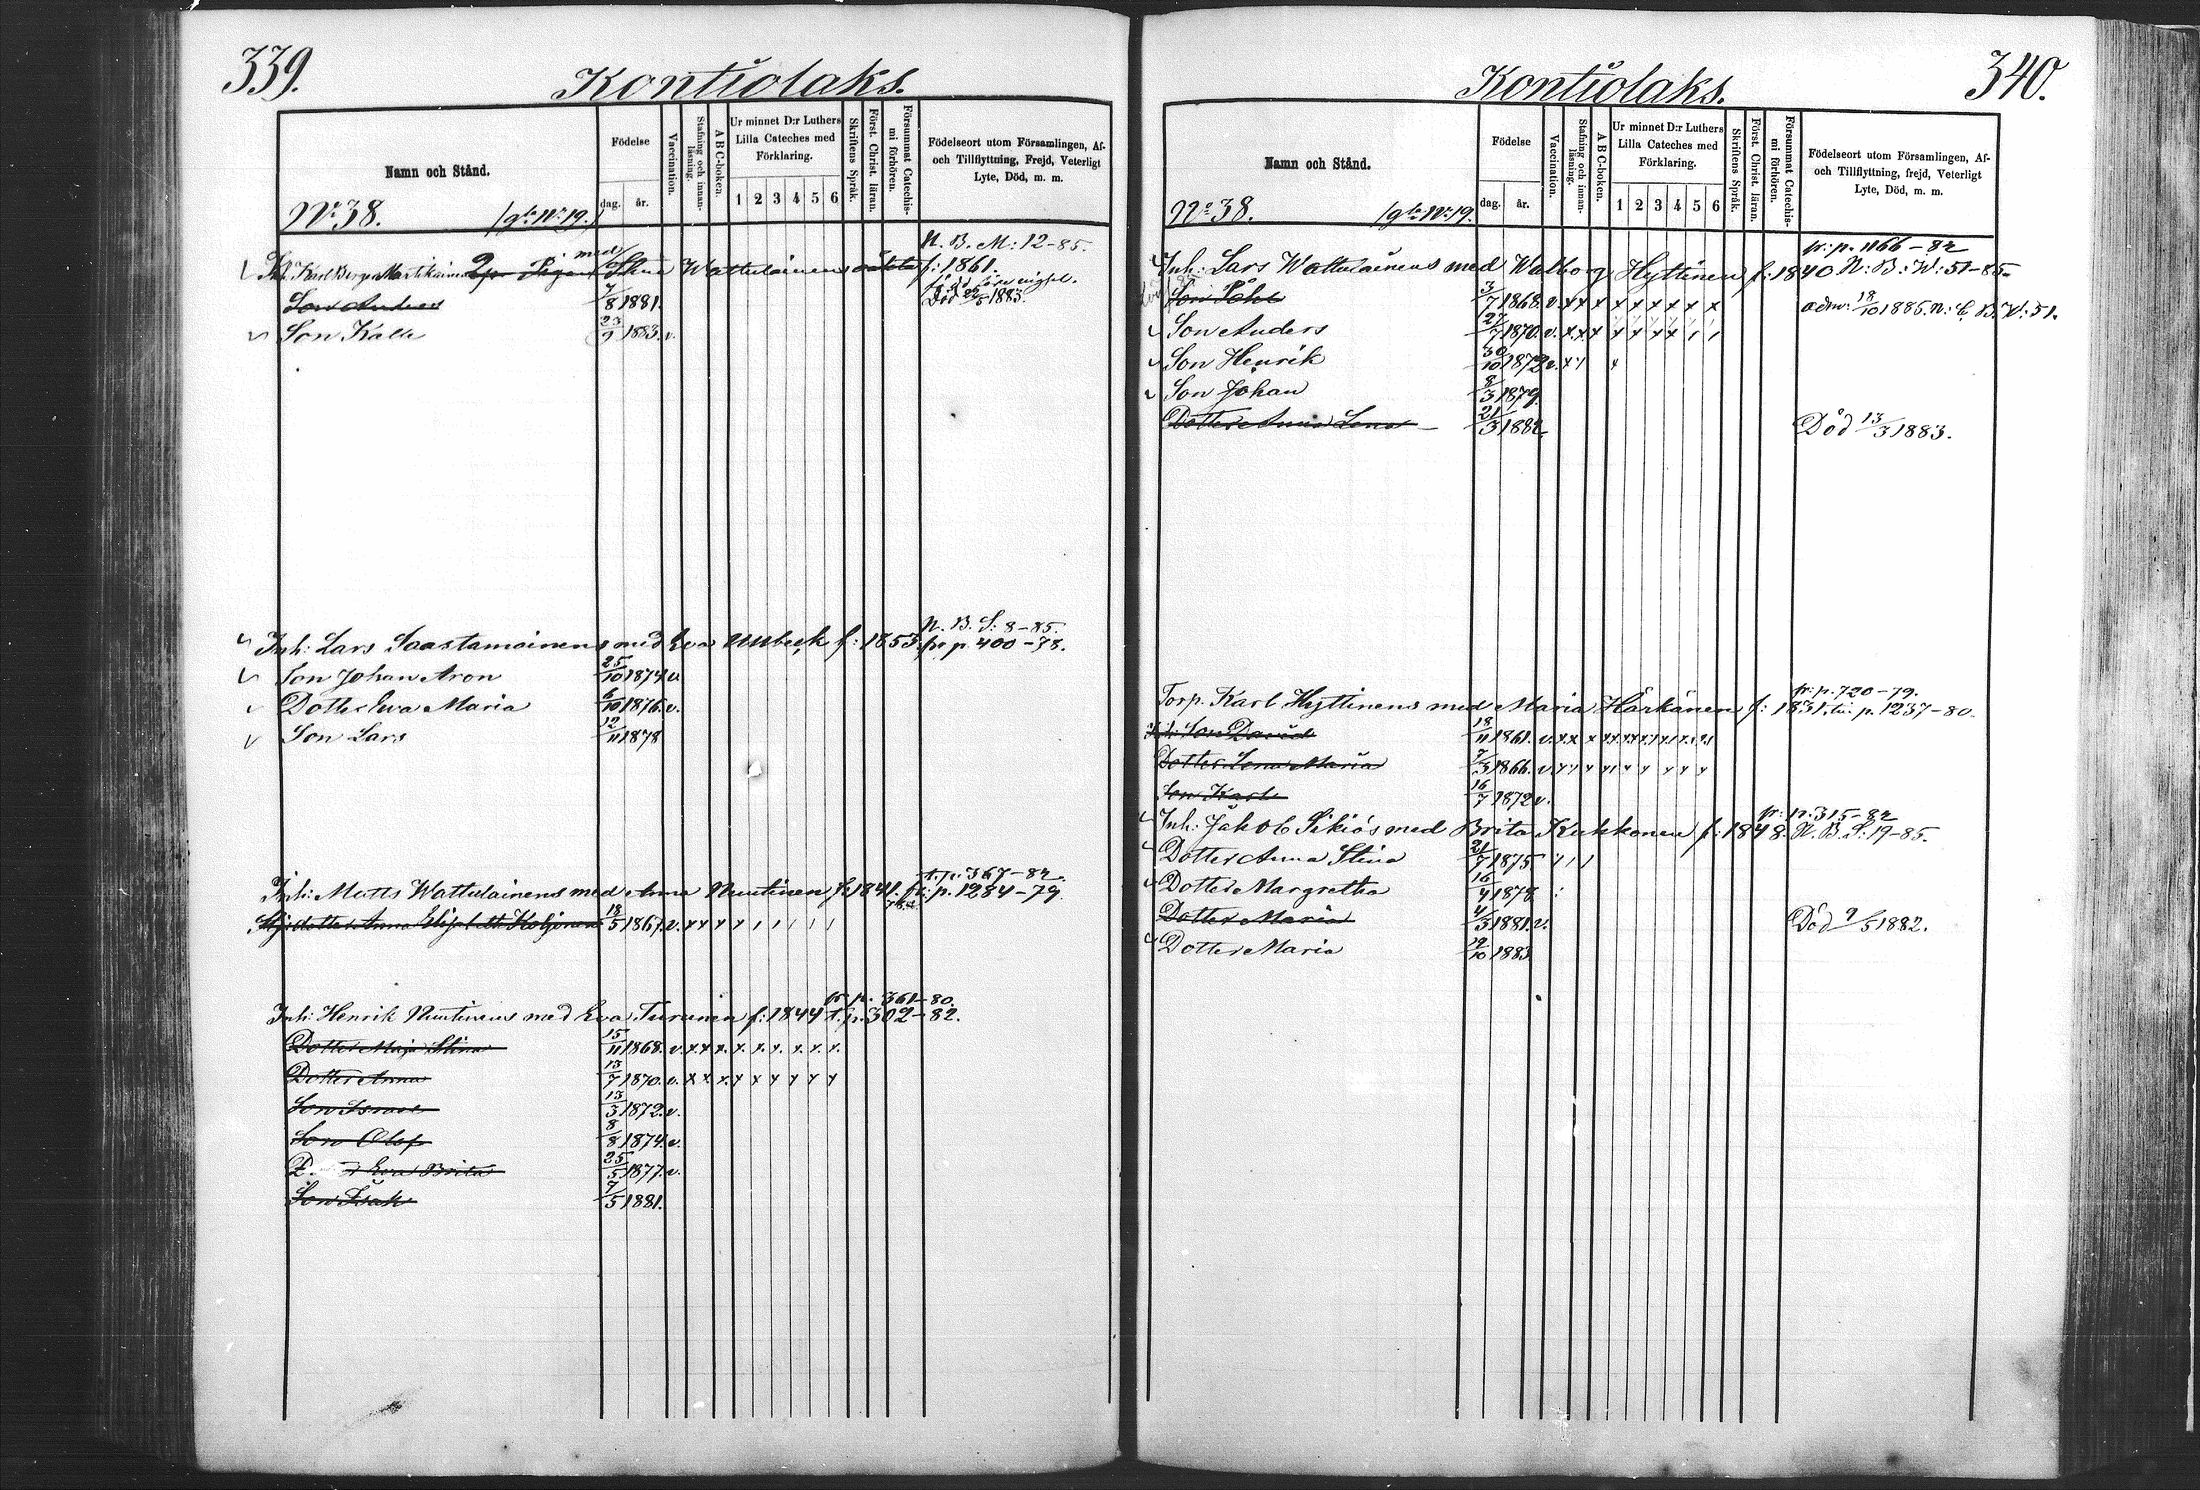 339.
Kontiolaks.
Namn och Stånd.
Födelse
dag.
år.
Vaccination.
Stafning och innan-läsning.
A B C-boken.
Ur minnet D:r Luthers
Lilla Cateches med
Förklaring.
1 2 3 4 5 6
Skriftens Språk.
Först. Christ. läran.
Försummat Catechis-mi förhören.
Födelseort utom Församlingen, Af-
och Tillflyttning, Frejd, Veterligt
Lyte, Död, m. m.
No 38. /gla No 19./
N. B. M: 12-85.
Inh. Karl Berger Martikainen med Stina Wattulainens f: 1861.
Son Anders 7/8 1881. Död 1883.
Son Kalle 23/9 1883. v.
N. B. S: 8-85.
Inh: Lars Saastamoinens med Eva f: 1853. fr. p. 400-78.
Son Johan Aron 25/10 1874 v.
Dotter Eva Maria 6/10 1876. v.
Son Lars 12/11 1878
t. p. 367-82.
Inh: Matts Wattulainens med Anna Nuutinen f: 1841. fr: p. 1284-79.
Styfdotter Anna Elisabeth Koljonen 18/5 1867. v. x x x x
fr. p. 361-80.
Inh: Henrik Nuutinens med Eva Turunen f: 1844 t. p. 302-82.
Dotter Maja Stina 15/11 1868. v. x x x. x. x. x. x. x. x.
Dotter Anna 13/7 1870. v. x x. x. x x x x x x
Son Israel 13/3 1872. v.
Son Olof 8/8 1874. v.
D. Eva Brita 25/5 1877. v.
Son Isak 7/5 1881.
340.
Kontiolaks.
Namn och Stånd.
Födelse
dag.
år.
Vaccination.
Stafning och innan-läsning.
A B C-boken.
Ur minnet D:r Luthers
Lilla Cateches med
Förklaring.
1 2 3 4 5 6
Skriftens Språk.
Först. Christ. läran.
Försummat Catechis-mi förhören.
Födelseort utom Församlingen, Af-
och Tillflyttning, frejd, Veterligt
Lyte, Död, m. m.
No 38. /gla No 19.
fr: p. 1166-82
Inh: Lars Wattulainens med Walborg Hyttinen f: 1840 N: B: W: 51-85.
Son Påhl 3/7 1868. v. x x x x x x x x x adm: 18/10 1885. N: C. B. W: 51.
Son Anders 27/7 1870. v. x x x x x x x
Son Henrik 30/10 1872 v. x
Son Johan 8/3 1879.
Dotter Anna Lena 21/3 1882 Död 13/3 1883.
fr: p. 720-79.
Torp. Karl Hyttinens med Maria Härkänen f: 1831. til. p. 1237-80.
Inh: Son David 18/11 1861. v. x x x x x x x x x
Dotter Lena Maria 7/3 1866. v x x x x x x x x
Son Karl 16/7 1872 v.
fr: p. 315-82
Inh: Jakob Sikiös med Brita Kukkonen f: 1848. N. B. S: 19-85.
Dotter Anna Stina 21/7 1875
Dotter Margretha 16/4 1878
Dotter Maria 4/3 1881. v. Död 9/5 1882.
Dotter Maria 12/10 1883